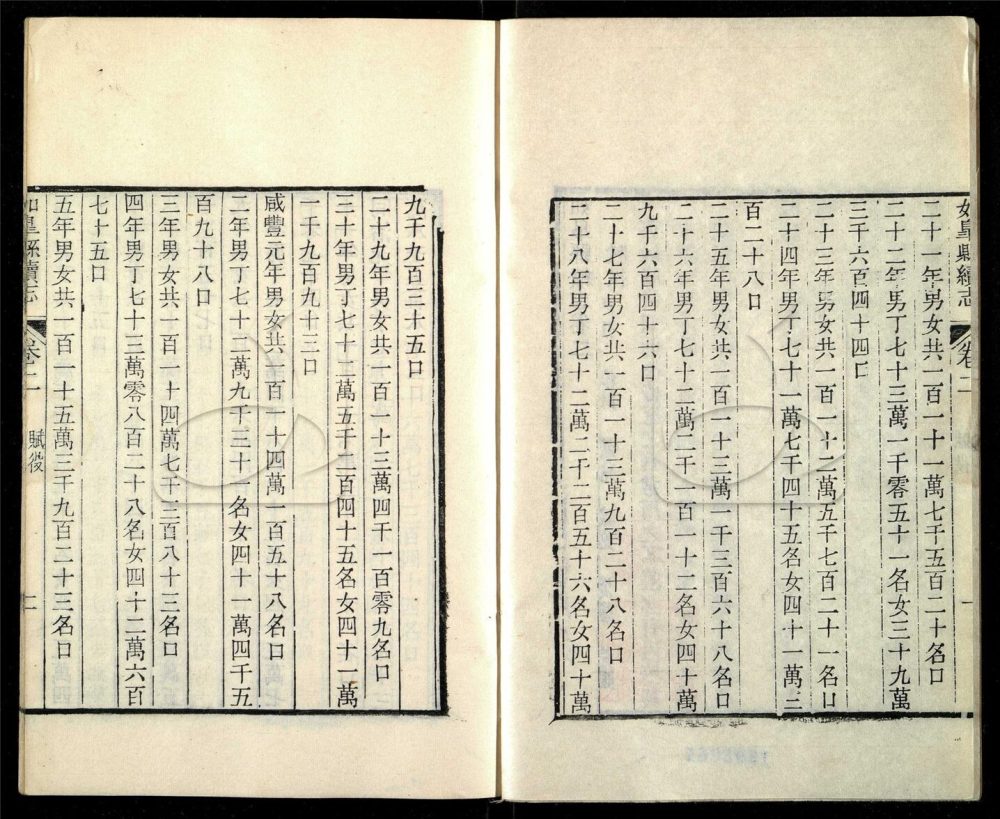 如皋縣續志 卷二 一
二十一年男女共一百一十一萬七千五百二十名口
二十二年男丁七十三萬一千零五十一名女三十九萬
三千六百四十四口
二十三年男女共一百一十二萬五千七百二十一名口
二十四年男丁七十一萬七千四十五名女四十一萬三
百二十八口
二十五年男女共一百一十三萬一千三百六十八名口
二十六年男丁七十二萬二千一百一十二名女四十萬
九千六百四十六口
二十七年男女共一百一十三萬九百二十八名口
二十八年男丁七十二萬二千二百五十六名女四十萬
九千九百三十五口
二十九年男女共一百一十三萬四千一百零九名口
三十年男丁七十二萬五千二百四十五名女四十一萬
一千九百九十三口
咸豐元年男女共一百一十四萬一百五十八名口
二年男丁七十二萬九千三十一名女四十一萬四千五
百九十八口
三年男女共一百一十四萬七千三百八十三名口
四年男丁七十三萬零八百二十八名女四十二萬六百
七十五口
五年男女共一百一十五萬三千九百二十三名口
如皋縣續志 卷二 賦役 二